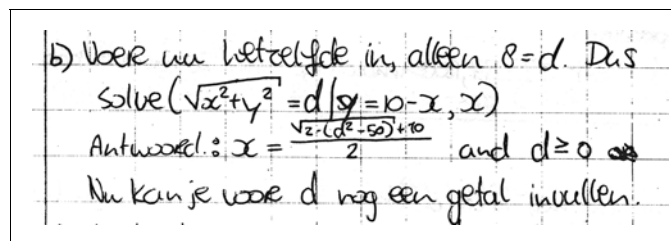 b) Voer nu hetzelfde in, alleen 8=d. Dus
solve(√x²+y² = d | y = 10-x, x)
Antwoord: x = √2·(d²-50)+10 / 2 and d≥0
Nu kan je voor d nog een getal invullen.